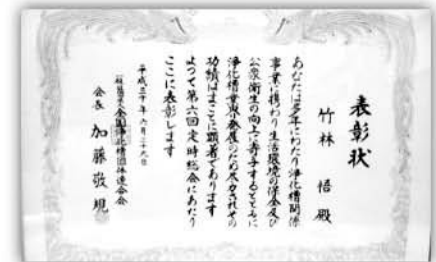 表彰状
竹林 悟 殿
あなたは多年にわたり浄化槽関係
事業に携わり生活環境の保全及び
公衆衛生の向上に寄与するとともに
浄化槽業界発展のため尽力されその
功績はまことに顕著であります
よって第六回定時総会にあたり
ここに表彰します
平成三十年六月二十九日
一般社団法人全国浄化槽団体連合会
会長 加藤敬規